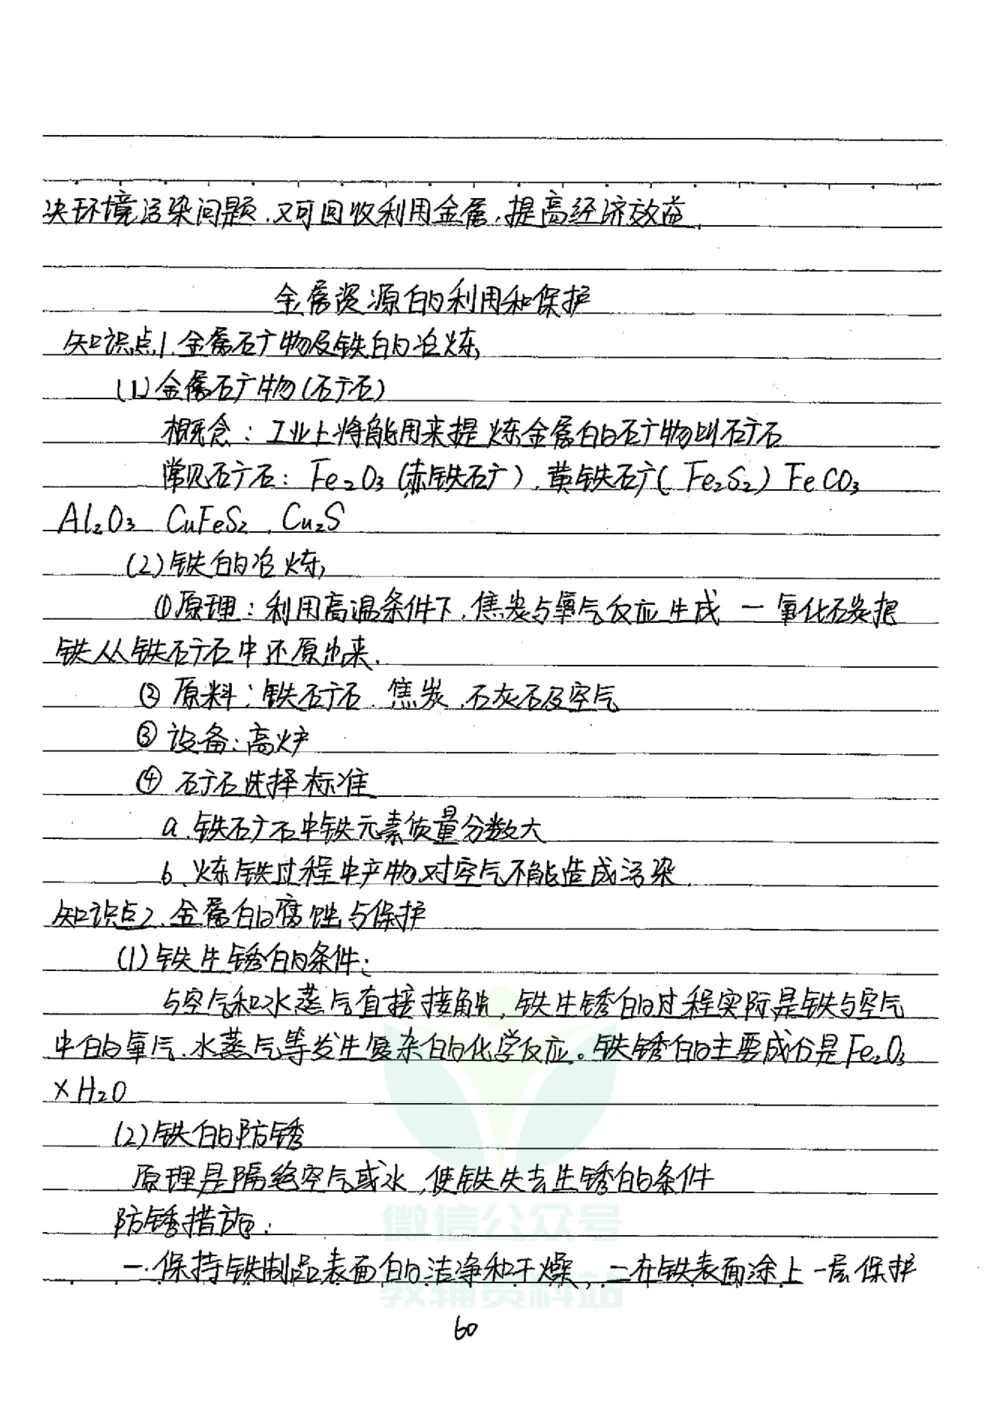 决环境污染问题,又可回收利用金属,提高经济效益,
金属资源的利用和保护
知识点1.金属矿物及铁的冶炼
(1)金属矿物(矿石)
概念:工业上将能用来提炼金属的矿物叫矿石
常见矿石:Fe₂O₃(赤铁矿),黄铁矿(Fe₂S₂)FeCO₃
Al₂O₃ CuFeS₂,Cu₂S
(2)铁的冶炼
①原理:利用高温条件下,焦炭与氧气反应生成一氧化碳把
铁从铁矿石中还原出来.
②原料:铁矿石.焦炭.石灰石及空气
③设备:高炉
④矿石选择标准
a.铁矿石中铁元素质量分数大
b、炼铁过程中产物对空气不能造成污染
知识点2.金属的腐蚀与保护
(1)铁生锈的条件:
与空气和水蒸气直接接触,铁生锈的过程实际是铁与空气
中的氧气、水蒸气等发生复杂的化学反应。铁锈的主要成份是Fe₂O₃
×H₂O
(2)铁的防锈
原理是隔绝空气或水,使铁失去生锈的条件
防锈措施:
一.保持铁制品表面的洁净和干燥,二在铁表面涂上一层保护
60
微信公众号
教辅资料站